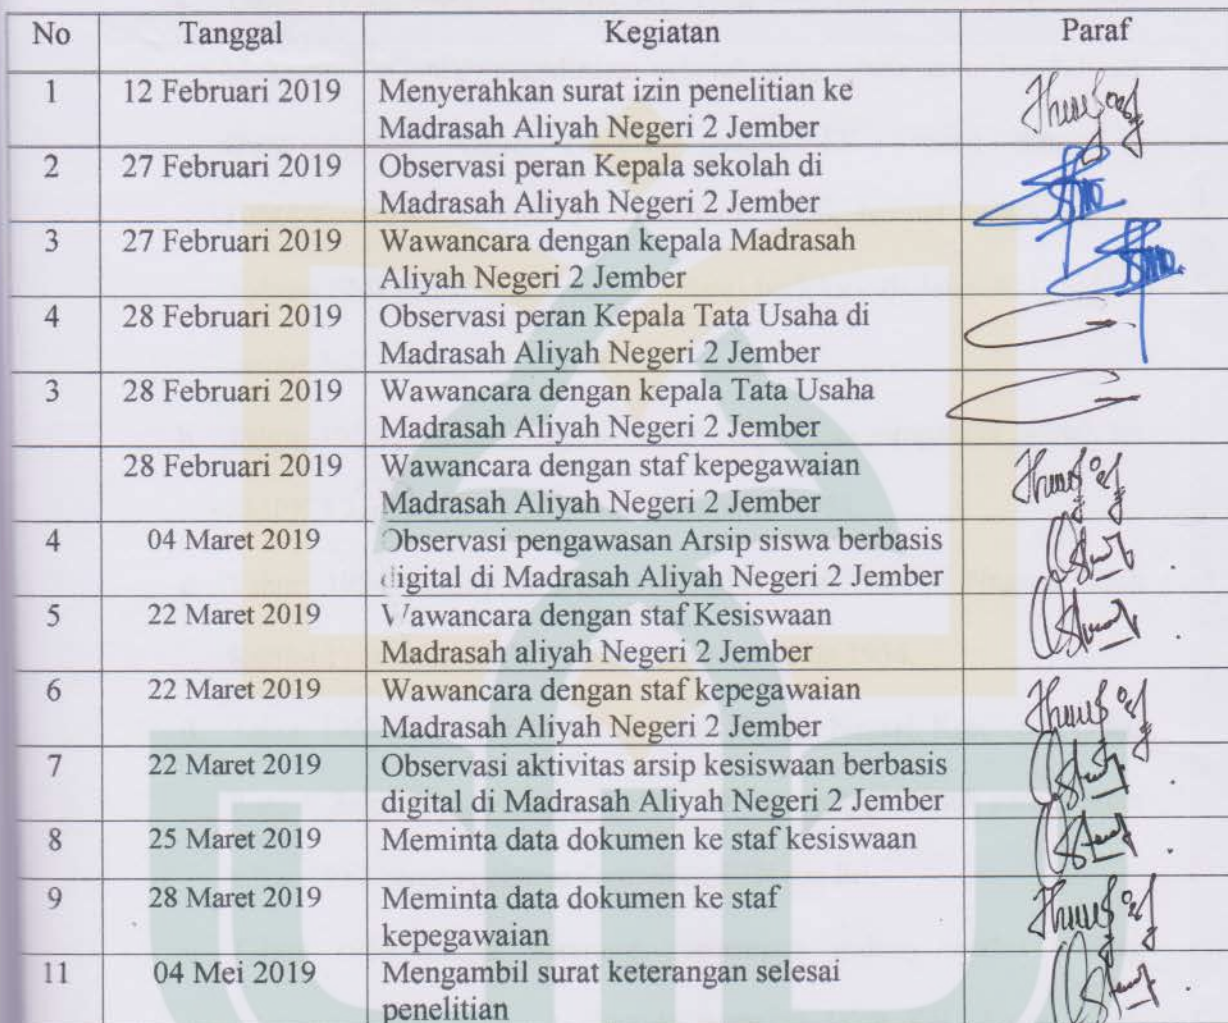 No Tanggal Kegiatan Paraf
1 12 Februari 2019 Menyerahkan surat izin penelitian ke
Madrasah Aliyah Negeri 2 Jember
2 27 Februari 2019 Observasi peran Kepala sekolah di
Madrasah Aliyah Negeri 2 Jember
3 27 Februari 2019 Wawancara dengan kepala Madrasah
Aliyah Negeri 2 Jember
4 28 Februari 2019 Observasi peran Kepala Tata Usaha di
Madrasah Aliyah Negeri 2 Jember
3 28 Februari 2019 Wawancara dengan kepala Tata Usaha
Madrasah Aliyah Negeri 2 Jember
28 Februari 2019 Wawancara dengan staf kepegawaian
Madrasah Aliyah Negeri 2 Jember
4 04 Maret 2019 Observasi pengawasan Arsip siswa berbasis
digital di Madrasah Aliyah Negeri 2 Jember
5 22 Maret 2019 Wawancara dengan staf Kesiswaan
Madrasah aliyah Negeri 2 Jember
6 22 Maret 2019 Wawancara dengan staf kepegawaian
Madrasah Aliyah Negeri 2 Jember
7 22 Maret 2019 Observasi aktivitas arsip kesiswaan berbasis
digital di Madrasah Aliyah Negeri 2 Jember
8 25 Maret 2019 Meminta data dokumen ke staf kesiswaan
9 28 Maret 2019 Meminta data dokumen ke staf
kepegawaian
11 04 Mei 2019 Mengambil surat keterangan selesai
penelitian